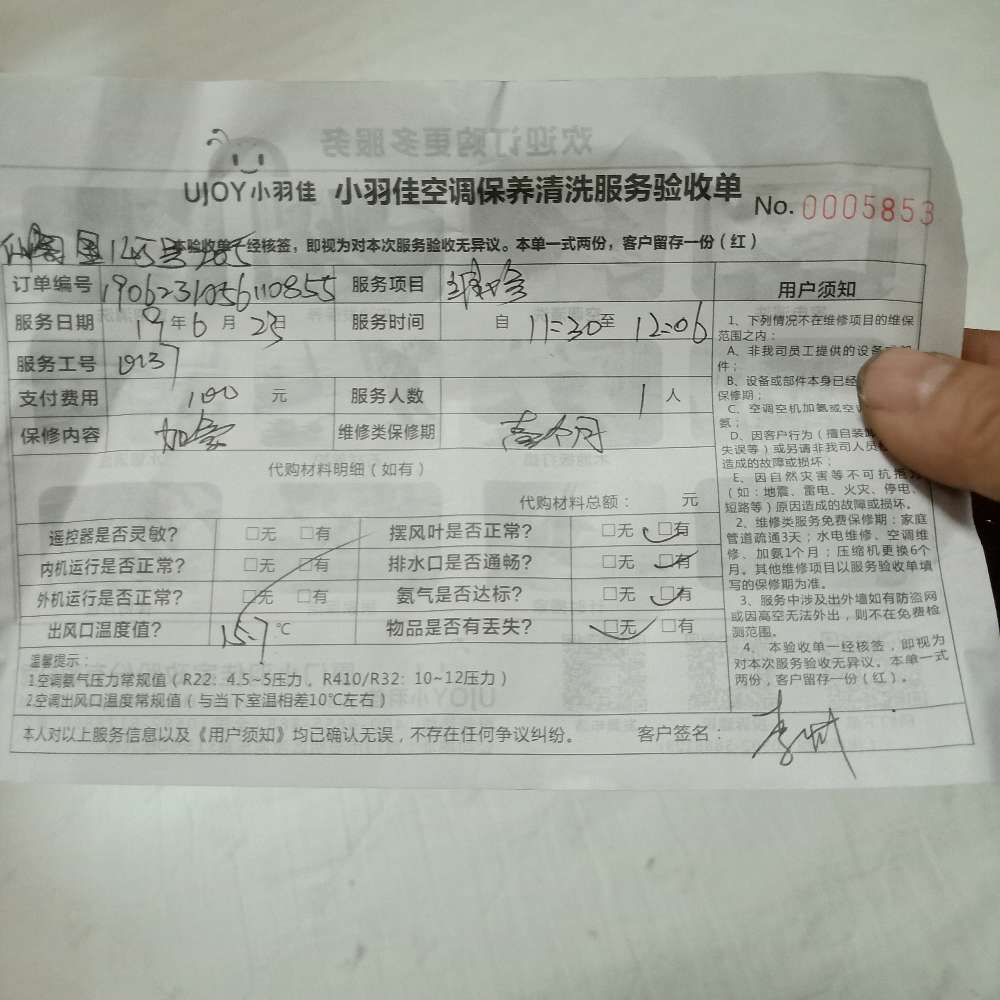 欢迎订购更多服务
UJOY小羽佳 小羽佳空调保养清洗服务验收单 No. 0005853
本验收单一经核签，即视为对本次服务验收无异议。本单一式两份，客户留存一份（红）
订单编号 1906231056110855 服务项目
服务日期 19年6月23日 服务时间 自 11:30至 12:06
服务工号
支付费用 100 元 服务人数 1 人
保修内容 加氨 维修类保修期 壹个月
代购材料明细（如有）
代购材料总额： 元
遥控器是否灵敏？ □无 □有 摆风叶是否正常？ □无 □有
内机运行是否正常？ □无 □有 排水口是否通畅？ □无 □有
外机运行是否正常？ □无 □有 氨气是否达标？ □无 □有
出风口温度值？ 15.7 ℃ 物品是否有丢失？ □无 □有
温馨提示：
1.空调氨气压力常规值（R22：4.5~5压力，R410/R32：10~12压力）
2.空调出风口温度常规值（与当下室温相差10℃左右）
本人对以上服务信息以及《用户须知》均已确认无误，不存在任何争议纠纷。 客户签名：
用户须知
1、下列情况不在维修项目的维保
范围之内：
A、非我司员工提供的设备或部
件；
B、设备或部件本身已经
保修期；
C、空调空机加氨或空
氨；
D、因客户行为（擅自装
失误等）或另请非我司人员
造成的故障或损坏；
E、因自然灾害等不可抗
（如：地震、雷电、火灾、停电、
短路等）原因造成的故障或损坏。
2、维修类服务免费保修期：家庭
管道疏通3天；水电维修、空调维
修、加氨1个月；压缩机更换6个
月。其他维修项目以服务验收单填
写的保修期为准。
3、服务中涉及出外墙如有防盗网
或因高空无法外出，则不在免费检
测范围。
4、本验收单一经核签，即视为
对本次服务验收无异议。本单一式
两份，客户留存一份（红）。